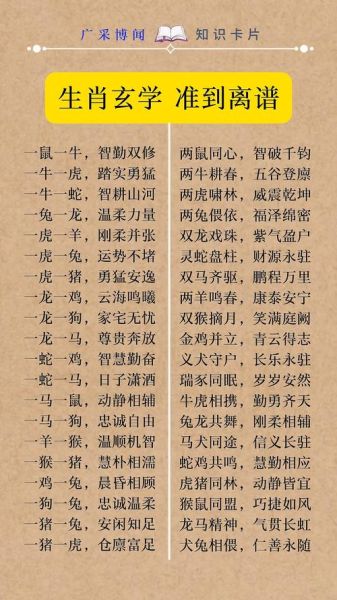 广采博闻 知识卡片
生肖玄学 准到离谱
一鼠一牛，智勤双修
一牛一虎，踏实勇猛
一牛一蛇，智耕山河
一兔一龙，温柔力量
一虎一羊，刚柔并张
一虎一兔，运势不堵
一虎一猪，勇猛安逸
一龙一鸡，云海鸣曦
一龙一狗，家宅无忧
一龙一马，尊贵奔放
一蛇一鸡，智慧勤奋
一蛇一马，日子潇洒
一马一鼠，动静相辅
一马一狗，忠诚自由
一羊一猴，温顺机智
一猴一猪，慧朴相濡
一鸡一兔，晨昏相顾
一狗一兔，忠诚温柔
一猪一兔，安闲知足
一猪一虎，仓廪富足
两鼠同心，智破千钧
两牛耕春，五谷登廪
两虎啸林，威震乾坤
两兔偎依，福泽绵密
双龙戏珠，紫气盈户
灵蛇盘柱，财源永驻
双马齐驱，鹏程万里
两羊鸣春，康泰安宁
双猴摘月，笑满庭阙
金鸡并立，青云得志
义犬守户，长乐永驻
瑞豕同眠，岁岁安然
牛虎相携，勤勇齐天
兔龙共舞，刚柔相辅
马犬同途，信义长驻
蛇鸡共鸣，慧勤相应
虎猪同林，动静皆宜
猴鼠同盟，巧捷如风
龙马精神，气贯长虹
犬兔相偎，仁善永随